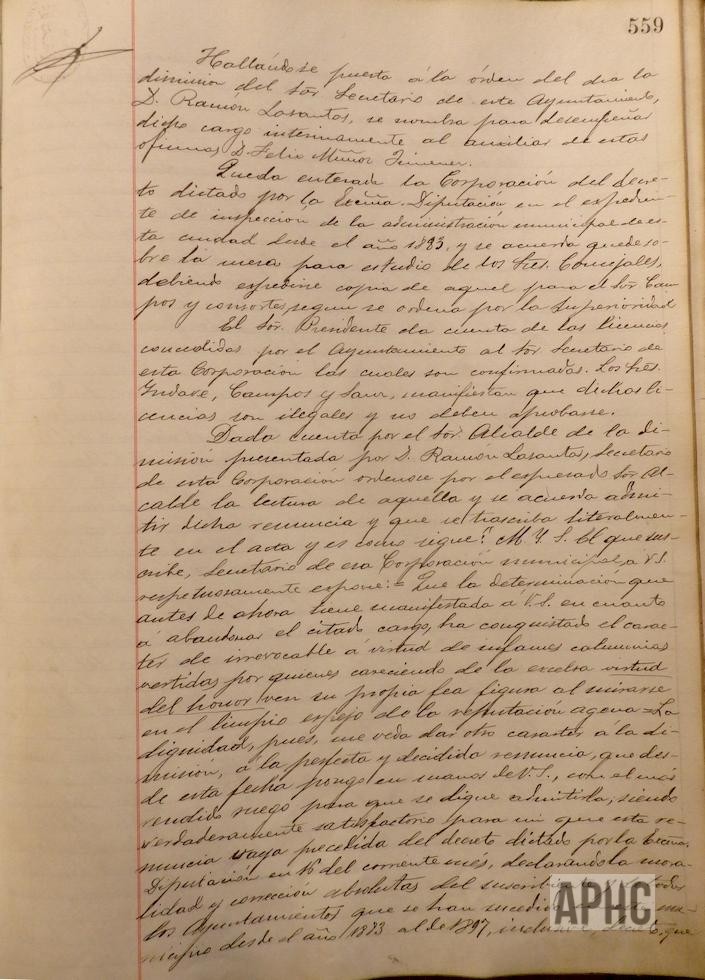 559
Hallándose puesta á la órden del dia la
dimision del Sor Secretario de este Ayuntamiento,
D. Ramón Lasantas, se nombra para desempeñar
dicho cargo interinamente al auxiliar de estas
oficinas D. Felix Muñoz Jimenez.
Queda enterada la Corporación del decre-
to dictado por la Excma. Diputación en el expedien-
te de inspección de la administración municipal de es-
ta ciudad desde el año 1893, y se acuerda quede so-
bre la mesa para estudio de los Sres. Concejales,
debiendo expedirse copia de aquel para el Sor Cam-
pos y consortes, segun se ordena por la Superioridad
El Sor. Presidente da cuenta de las licencias
concedidas por el Ayuntamiento al Sor Secretario de
esta Corporación las cuales son confirmadas. Los Sres.
Campos y manifiestan que dichas li-
cencias son ilegales y no deben aprobarse.
Dada cuenta por el Sor. Alcalde de la di-
misión presentada por D. Ramón Lasantas, Secretario
de esta Corporación ordenose por el expresado Sor Al-
calde la lectura de aquella y se acuerda admi-
tir dicha renuncia y que se trascriba literalmen-
te en el acta y es como sigue: M. Y. S. El que sus-
cribe, Secretario de esa Corporación municipal, a V.S.
respetuosamente expone: = Que la determinación que
antes de ahora tiene manifestada á V.S. en cuanto
á abandonar el citado cargo, ha conquistado el carac-
ter de irrevocable á virtud de infames calumnias
vertidas por quienes careciendo de la excelsa virtud
del honor ven su propia fea figura al mirarse
en el limpio espejo de la reputación agena = La
dignidad, pues, me veda dar otro caracter á la di-
misión, á la perfecta y decidida renuncia, que des-
de esta fecha pongo en manos de V.S., con el más
rendido ruego para que se digne admitirla; siendo
verdaderamente satisfactorio para mi que esta re-
nuncia vaya precedida del decreto dictado por la Excma.
Diputación en 16 del corriente mes, declarando la mora-
lidad y corrección absolutas del suscribiente y de todos
los Ayuntamientos que se han sucedido en
desde el año 1893 al de 1897, inclusive, que
APHC